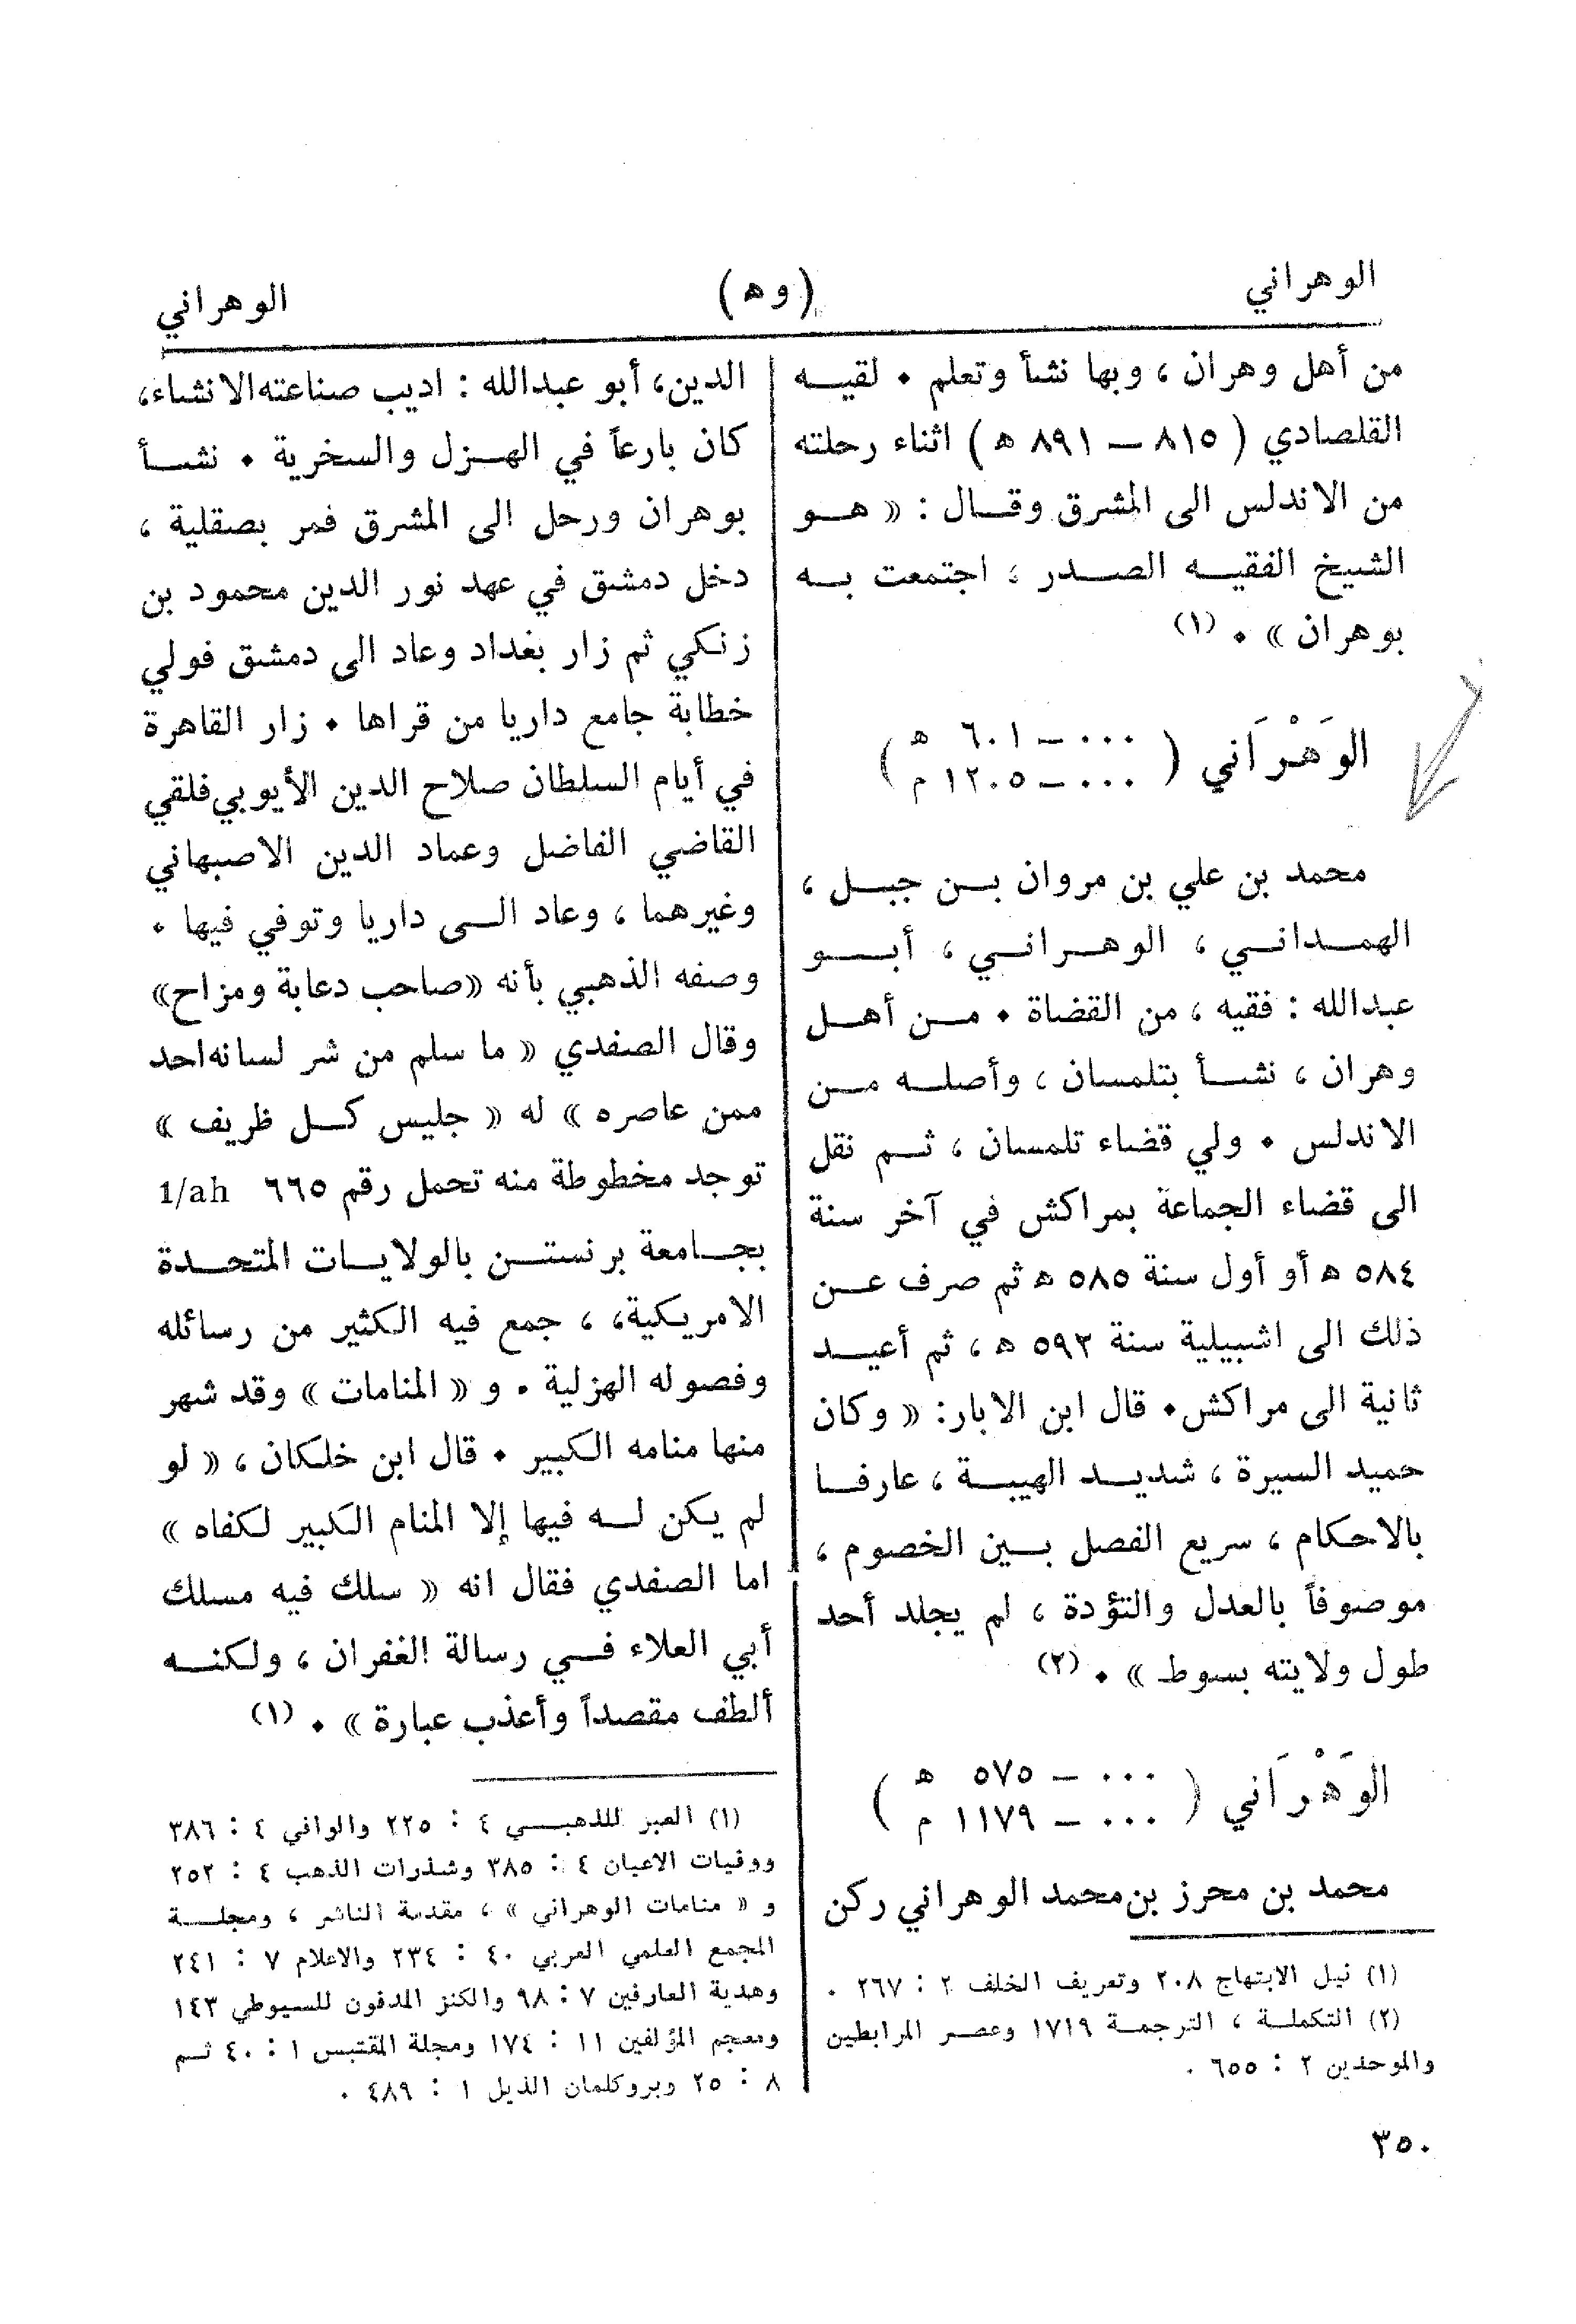 الوهراني
(وه)
الوهراني
من أهل وهران ، وبها نشأ وتعلم . لقيه
القلصادي ( ٨١٥ – ٨٩١ ه ) اثناء رحلته
من الاندلس الى المشرق وقال : « هو
الشيخ الفقيه الصدر ، اجتمعت به
بوهران » . (١)
الوَهْرَاني ( ... – ٦٠١ ه
... – ١٢٠٥ م )
محمد بن علي بن مروان بن جبل ،
الهمداني ، الوهراني ، أبو
عبدالله : فقيه ، من القضاة . من أهل
وهران ، نشأ بتلمسان ، وأصله من
الاندلس . ولي قضاء تلمسان ، ثم نقل
الى قضاء الجماعة بمراكش في آخر سنة
٥٨٤ ه أو أول سنة ٥٨٥ ه ثم صرف عن
ذلك الى اشبيلية سنة ٥٩٣ ه ، ثم أعيد
ثانية الى مراكش. قال ابن الابار: « وكان
حميد السيرة ، شديد الهيبة ، عارفا
بالاحكام ، سريع الفصل بين الخصوم ،
موصوفاً بالعدل والتؤدة ، لم يجلد أحد
طول ولايته بسوط » . (٢)
الوَهْرَاني ( ... – ٥٧٥ ه
... – ١١٧٩ م )
محمد بن محرز بن محمد الوهراني ركن
(١) نيل الابتهاج ٢٠٨ وتعريف الخلف ٢ : ٢٦٧ .
(٢) التكملة ، الترجمة ١٧١٩ وعصر المرابطين
والموحدين ٢ : ٦٥٥ .
الدين، أبو عبدالله : اديب صناعته الانشاء،
كان بارعاً في الهزل والسخرية . نشأ
بوهران ورحل الى المشرق فمر بصقلية ،
دخل دمشق في عهد نور الدين محمود بن
زنكي ثم زار بغداد وعاد الى دمشق فولي
خطابة جامع داريا من قراها . زار القاهرة
في أيام السلطان صلاح الدين الأيوبي فلقي
القاضي الفاضل وعماد الدين الاصبهاني
وغيرهما ، وعاد الى داريا وتوفي فيها .
وصفه الذهبي بأنه «صاحب دعابة ومزاح»
وقال الصفدي « ما سلم من شر لسانه احد
ممن عاصره » له « جليس كل ظريف »
توجد مخطوطة منه تحمل رقم ٦٦٥ 1/ah
بجامعة برنستن بالولايات المتحدة
الامريكية، ، جمع فيه الكثير من رسائله
وفصوله الهزلية . و « المنامات » وقد شهر
منها منامه الكبير . قال ابن خلكان ، « لو
لم يكن له فيها إلا المنام الكبير لكفاه »
اما الصفدي فقال انه « سلك فيه مسلك
أبي العلاء في رسالة الغفران ، ولكنه
ألطف مقصداً وأعذب عبارة » . (١)
(١) العبر للذهبي ٤ : ٢٢٥ والوافي ٤ : ٣٨٦
ووفيات الاعيان ٤ : ٣٨٥ وشذرات الذهب ٤ : ٢٥٢
و « منامات الوهراني » ، مقدمة الناشر ، ومجلة
المجمع العلمي العربي ٤٠ : ٢٣٤ والاعلام ٧ : ٢٤١
وهدية العارفين ٧ : ٩٨ والكنز المدفون للسيوطي ١٤٣
ومعجم المؤلفين ١١ : ١٧٤ ومجلة المقتبس ١ : ٤٠ ثم
٨ : ٢٥ وبروكلمان الذيل ١ : ٤٨٩ .
٣٥٠